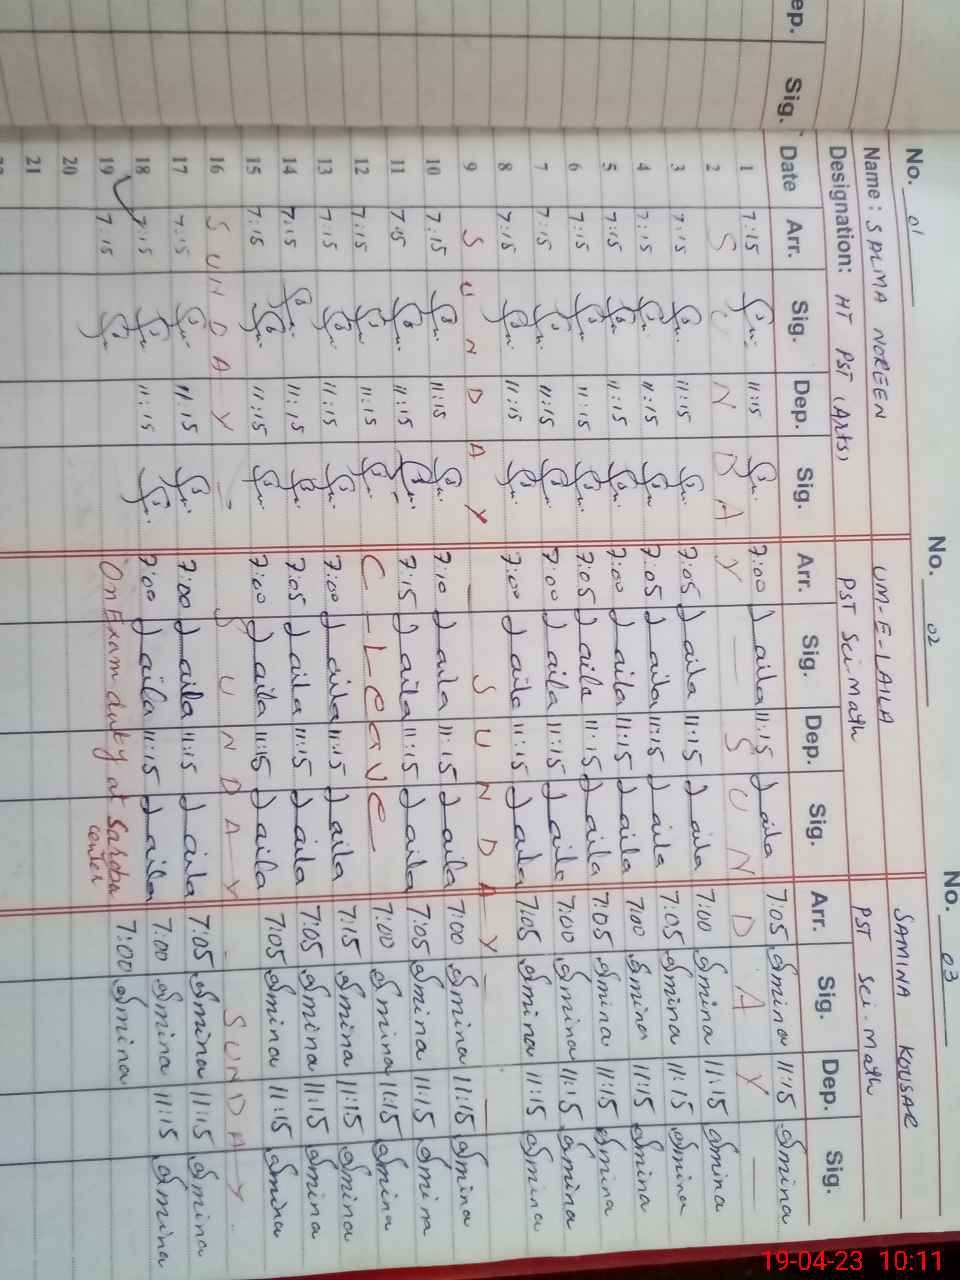 ep.
Sig.
No. 01
Name : SALMA NOREEN
Designation: HT PST (Arts)
No. 02
UM-E-LAILA
PST Sci-Math
No. 03
SAMINA KOUSAR
PST Sci-Math
Date Arr. Sig. Dep. Sig. Arr. Sig. Dep. Sig. Arr. Sig. Dep. Sig.
1 7:15 11:15 7:00 Laila 11:15 Laila 7:05 Smina 11:15 Smina
2 SUNDAY — SUNDAY — 7:00 Smina 11:15 Smina
3 7:15 11:15 7:05 Laila 11:15 Laila 7:05 Smina 11:15 Smina
4 7:15 11:15 7:05 Laila 11:15 Laila 7:00 Smina 11:15 Smina
5 7:15 11:15 7:00 Laila 11:15 Laila 7:05 Smina 11:15 Smina
6 7:15 11:15 7:05 Laila 11:15 Laila 7:00 Smina 11:15 Smina
7 7:15 11:15 7:00 Laila 11:15 Laila 7:05 Smina 11:15 Smina
8 7:15 11:15 7:00 Laila 11:15 Laila
9 SUNDAY — SUNDAY —
10 7:15 11:15 7:10 Laila 11:15 Laila 7:00 Smina 11:15 Smina
11 7:15 11:15 7:15 Laila 11:15 Laila 7:05 Smina 11:15 Smina
12 7:15 11:15 C-Leave 7:00 Smina 11:15 Smina
13 7:15 11:15 7:00 Laila 11:15 Laila 7:15 Smina 11:15 Smina
14 7:15 11:15 7:05 Laila 11:15 Laila 7:05 Smina 11:15 Smina
15 7:15 11:15 7:00 Laila 11:15 Laila 7:05 Smina 11:15 Smina
16 SUNDAY — SUNDAY - SUNDAY
17 7:15 11:15 7:00 Laila 11:15 Laila 7:05 Smina 11:15 Smina
18 7:15 11:15 7:00 Laila 11:15 Laila 7:00 Smina 11:15 Smina
19 7:15 On Exam duty at Saroba center 7:00 Smina
20
21
19-04-23 10:11